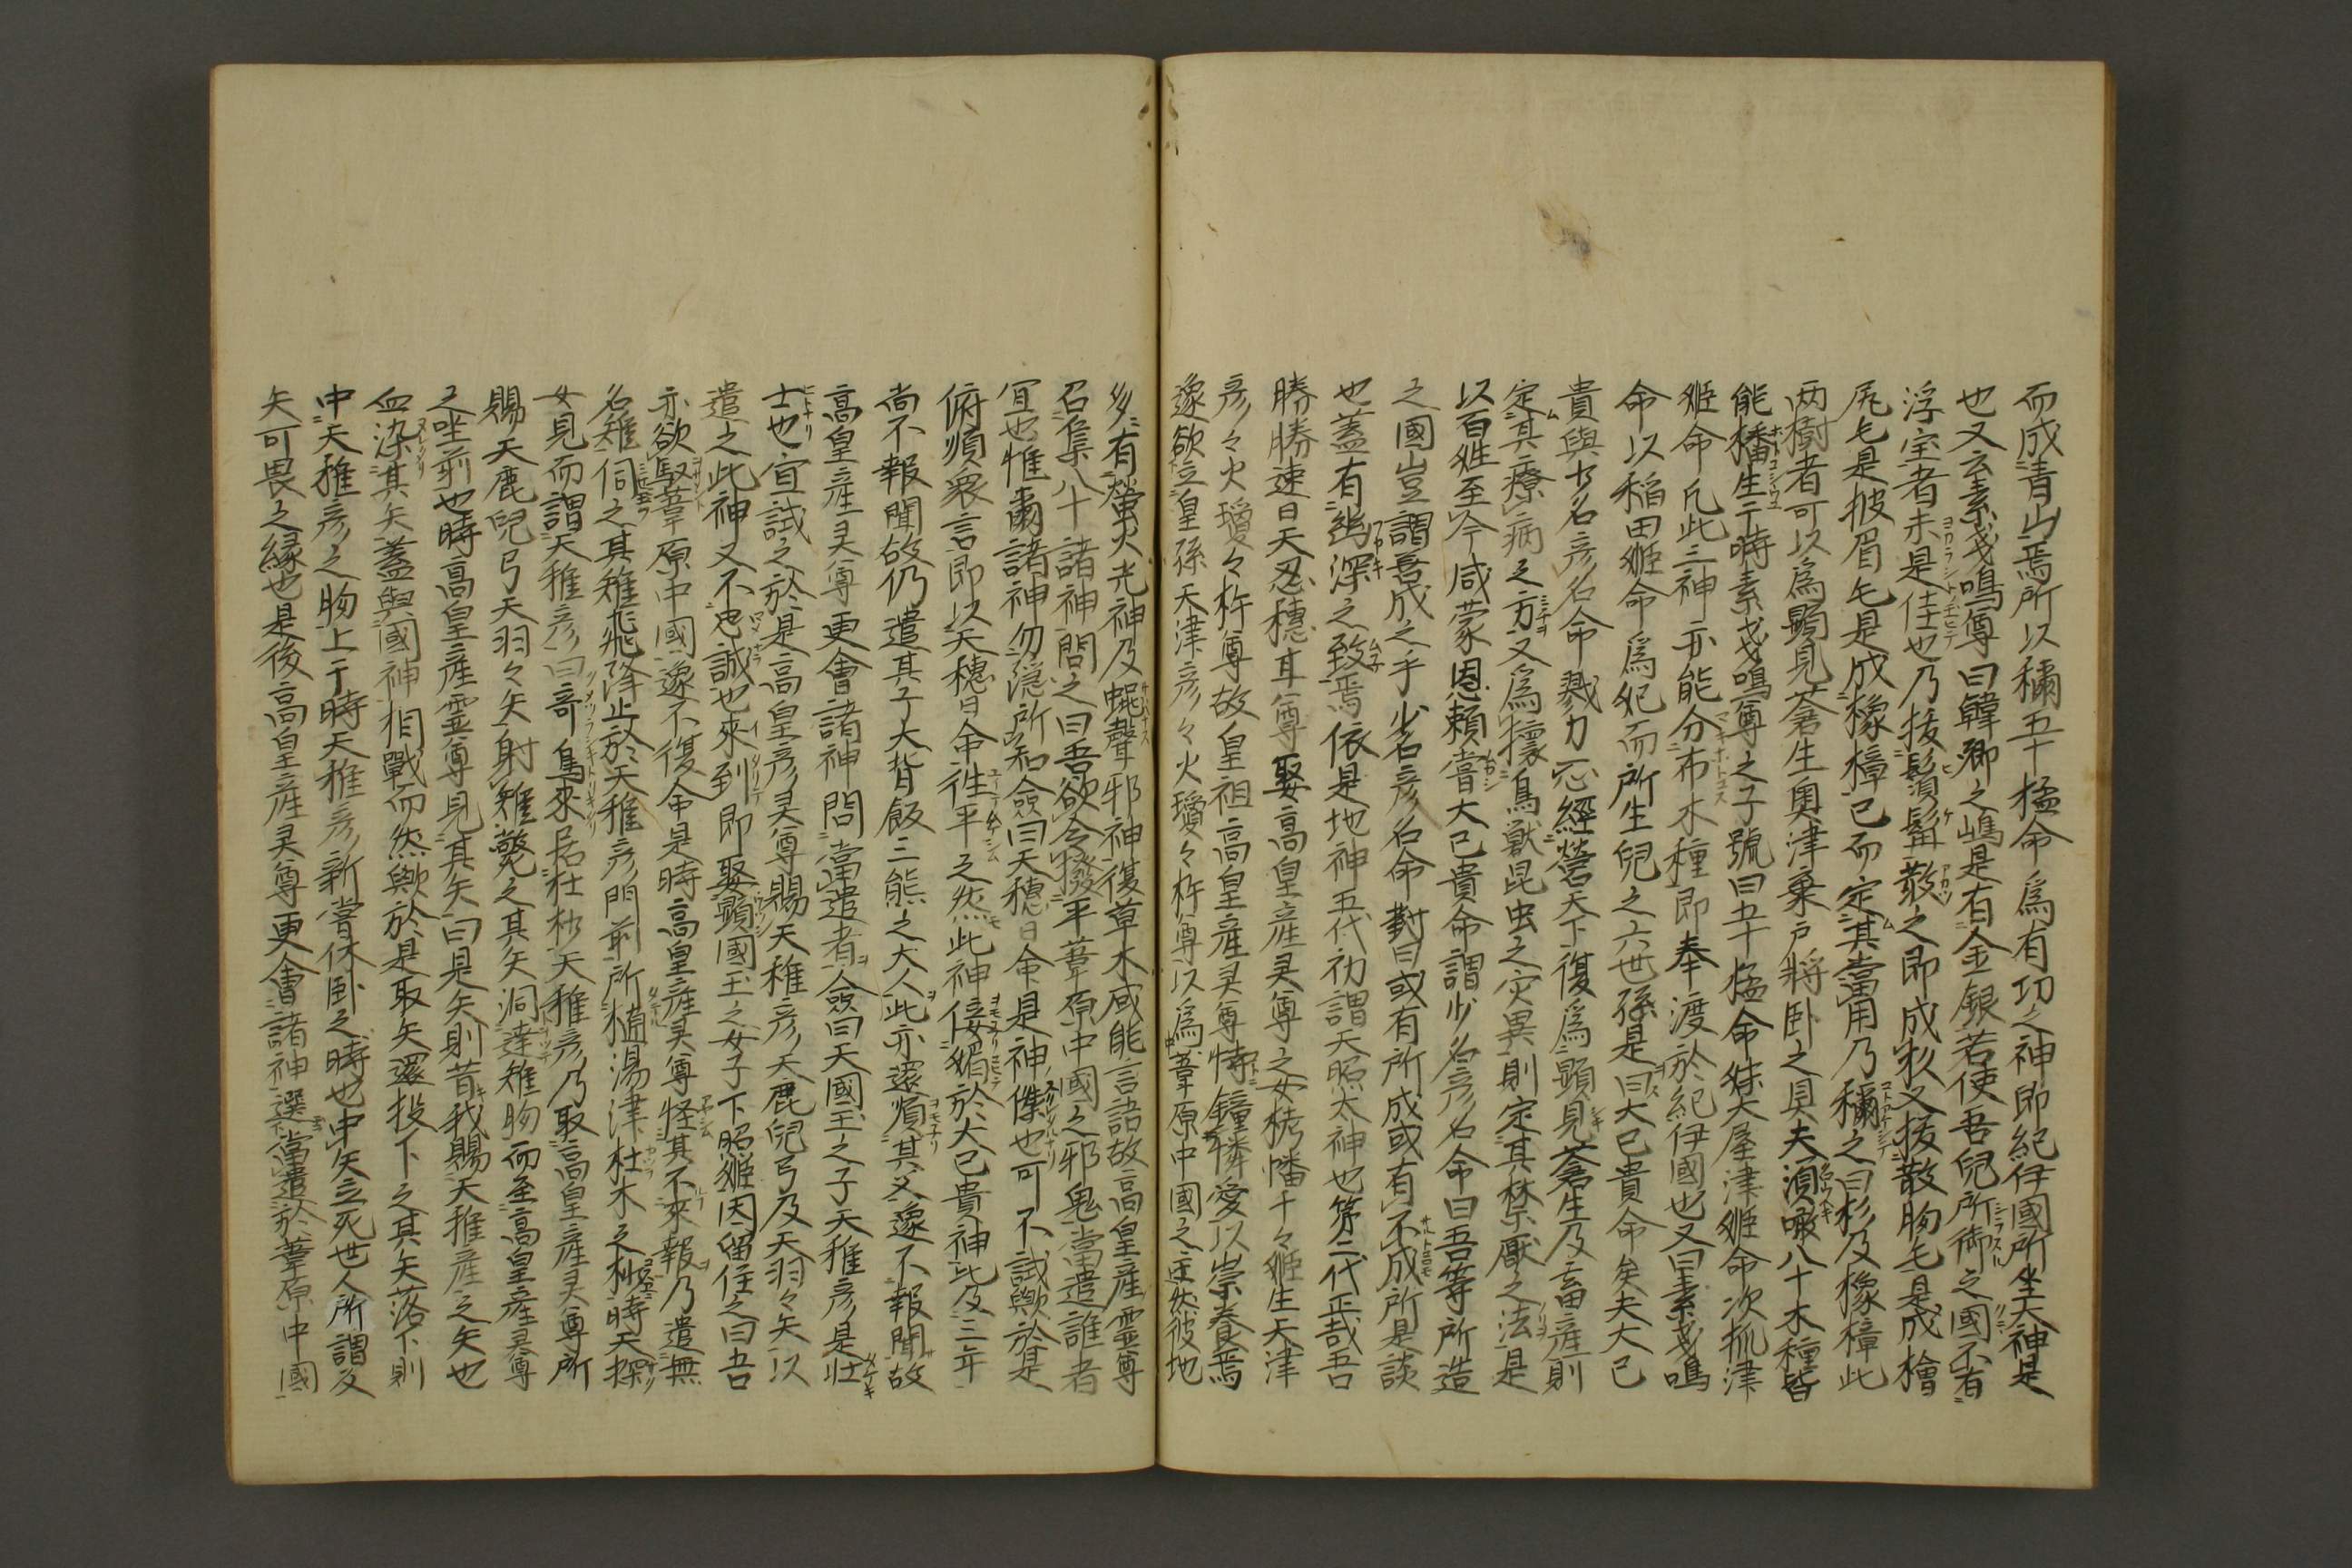 而成青山焉所以稱五十猛命爲有功之神即紀伊國所坐大神是
也又云素戔嗚尊曰韓鄕之嶋是有金銀若使吾兒所御之國不有
浮宝者未是佳也乃拔鬚髯散之即成杉又拔散胸毛是成檜
尻毛是披眉毛是成橡樟已而定其當用乃稱之曰杉及橡樟此
兩樹者可以爲顯見蒼生奧津棄戸將卧之具夫湏噉八十木種皆
能播生于時素戔嗚尊之子號曰五十猛命妹大屋津姫命次抓津
姫命凡此三神亦能分布木種即奉渡於紀伊國也又曰素戔嗚
命以稲田姫命爲妃而所生兒之六世孫是曰大已貴命矣夫大已
貴與少名彦名命戮力一心經營天下復爲顯見蒼生及畜產則
定其療病之方又爲攘鳥獸昆虫之灾異則定其禁厭之法是
以百姓至今咸蒙恩頼嘗大已貴命謂少名彦名命曰吾等所造
之國豈謂善成之乎少名彦名命對曰或有所成或有不成所是談
也蓋有幽深之致焉依是地神五代初謂天照太神也第二代正哉吾
勝勝速日天忍穗耳尊娶高皇產灵尊之女栲幡千々姫生天津
彦々火瓊々杵尊故皇祖高皇產灵尊特鐘憐愛以崇養焉
遂欲立皇孫天津彦々火瓊々杵尊以爲葦原中國之主然彼地
多有螢火光神及蝿聲邪神復草木咸能言語故高皇產霊尊
召集八十諸神問之曰吾欲令撥平葦原中國之邪鬼當遣誰者
冝也惟爾諸神勿隐所知僉曰天穗日命是神傑也可不試歟於是
俯順衆言即以天穗日命往平之然此神侫媚於大已貴神比及三年
尚不報聞故仍遣其子大背飯三熊之大人此亦還順其父遂不報聞故
高皇產灵尊更會諸神問當遣者僉曰天國玉之子天稚彦是壮
士也宜試之於是高皇彦灵尊賜天稚彦天鹿兒弓及天羽々矢以
遣之此神又不忠誠也來到即娶顯國玉之女子下照姫因留住之曰吾
亦欲馭葦原中國遂不復命是時高皇產灵尊怪其不來報乃遣無
名雉伺之其雉飛降止於天稚彦門前所植湯津杜木之杪時天探
女見而謂天稚彦曰奇鳥來居杜杪天稚彦乃取高皇產灵尊所
賜天鹿兒弓天羽々矢射雉斃之其矢洞達雉胸而至高皇產灵尊
之坐前也時高皇產霊尊見其矢曰是矢則昔我賜天稚產之矢也
血染其矢蓋與國神相戰而然歟於是取矢還投下之其矢落下則
中天稚彦之胸上于時天稚彦新嘗休卧之時也中矢立死世人所謂反
矢可畏之縁也是後高皇產灵尊更會諸神選當遣於葦原中國